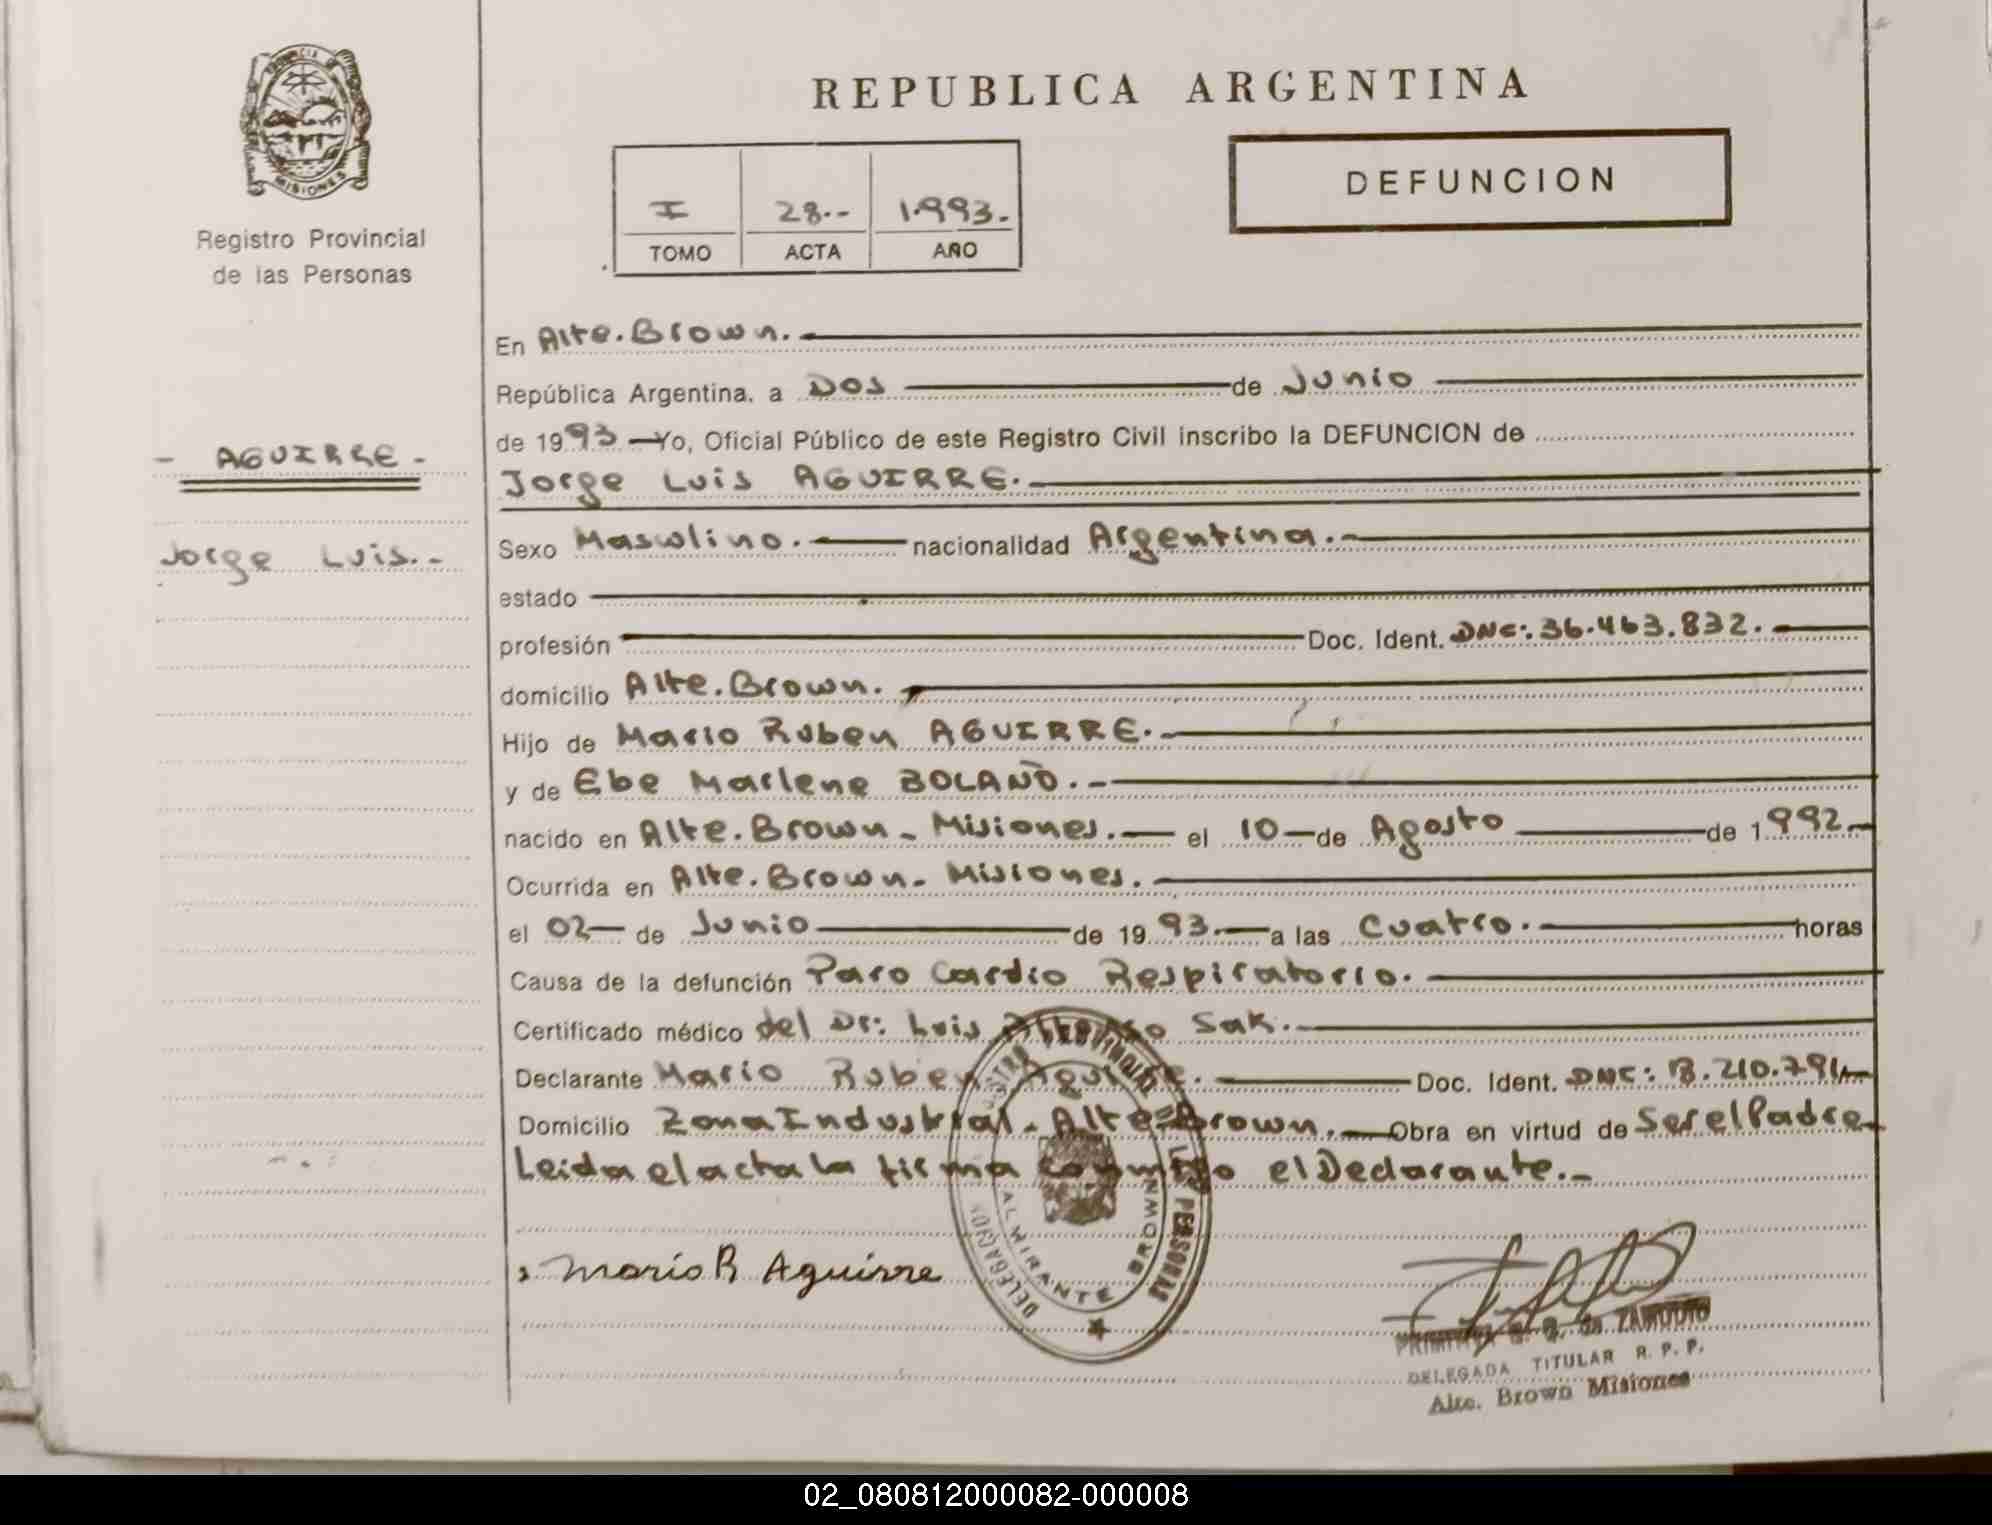 PROVINCIA DE
MISIONES
Registro Provincial
de las Personas
- AGUIRRE -
Jorge Luis.-
REPUBLICA ARGENTINA
I 28.- 1.993.-
TOMO ACTA AÑO
DEFUNCION
En Alte. Brown.
República Argentina, a Dos de Junio
de 1993 Yo, Oficial Público de este Registro Civil inscribo la DEFUNCION de
Jorge Luis AGUIRRE.
Sexo Masculino. nacionalidad Argentina.-
estado
profesión Doc. Ident. DNI: 36.463.832.
domicilio Alte. Brown.
Hijo de Mario Ruben AGUIRRE.-
y de Ebe Marlene BOLAÑO.-
nacido en Alte. Brown - Misiones.- el 10 de Agosto de 1992.-
Ocurrida en Alte. Brown - Misiones.
el 02 de Junio de 1993.- a las Cuatro. horas
Causa de la defunción Paro Cardio Respiratorio.
Certificado médico del Dr: Luis Sak.-
Declarante Mario Ruben Aguirre. Doc. Ident. DNI:
Domicilio Zona Industrial - Alte Brown. Obra en virtud de Ser el Padre.
Leida el acta la firma conmigo el Declarante.-
Mario R Aguirre
DELEGACION
ALMIRANTE BROWN
LAS PERSONAS
ZAMUDIO
DELEGADA TITULAR R. P. P.
Alte. Brown Misiones
02_080812000082-000008